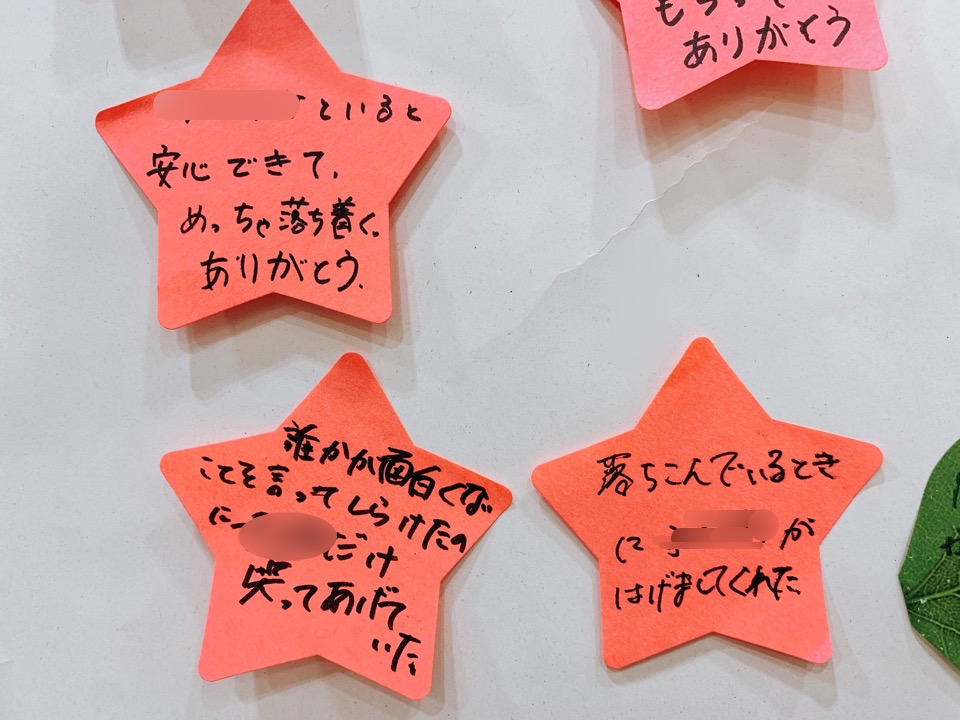 といると
安心できて、
めっちゃ落ち着く。
ありがとう。
ありがとう
誰かが面白くない
ことを言ってしらけたの
に だけ
笑ってあげて
いた
落ちこんでいるとき
に が
はげましてくれた